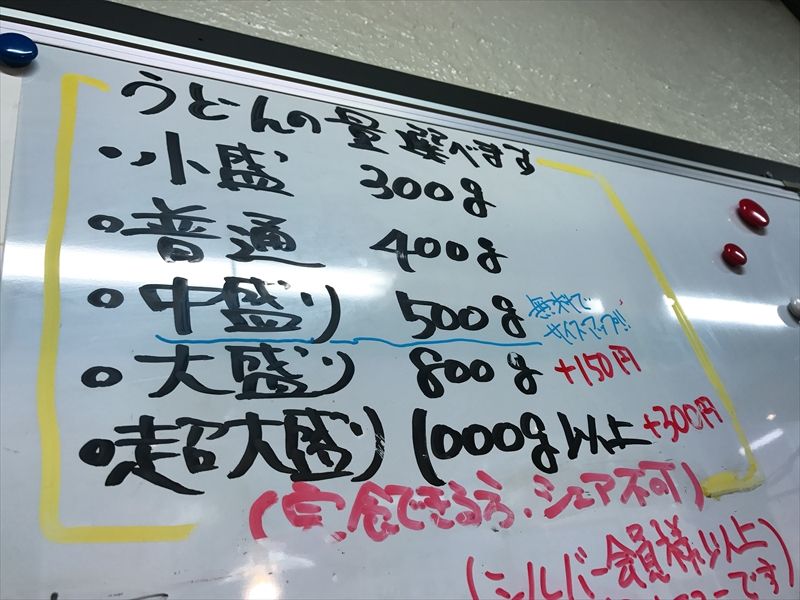 うどんの量選べます
・小盛 300g
○普通 400g
○中盛り 500g 無料で
サイズアップ!!
○大盛り 800g +150円
○超大盛り 1000g以上 +300円
(完食できる方、シェア不可)
(シルバー会員様以上)
です)